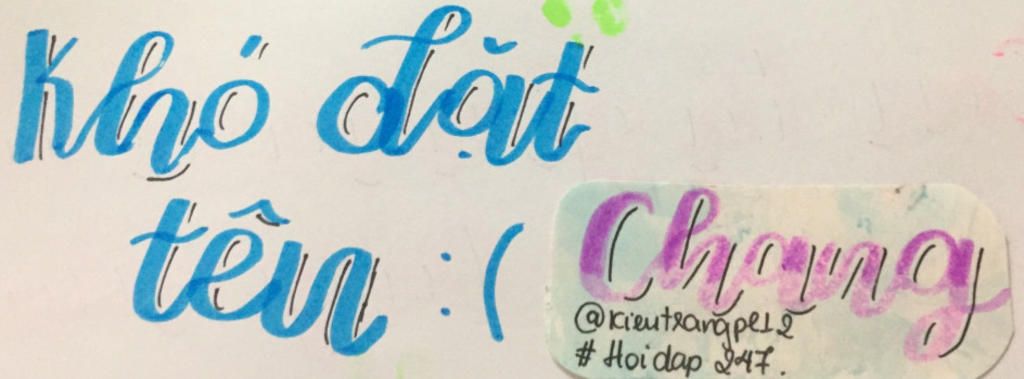 Khó đặt
tên :(
Chang
@kieutrangpl12
# Hoidap 247.